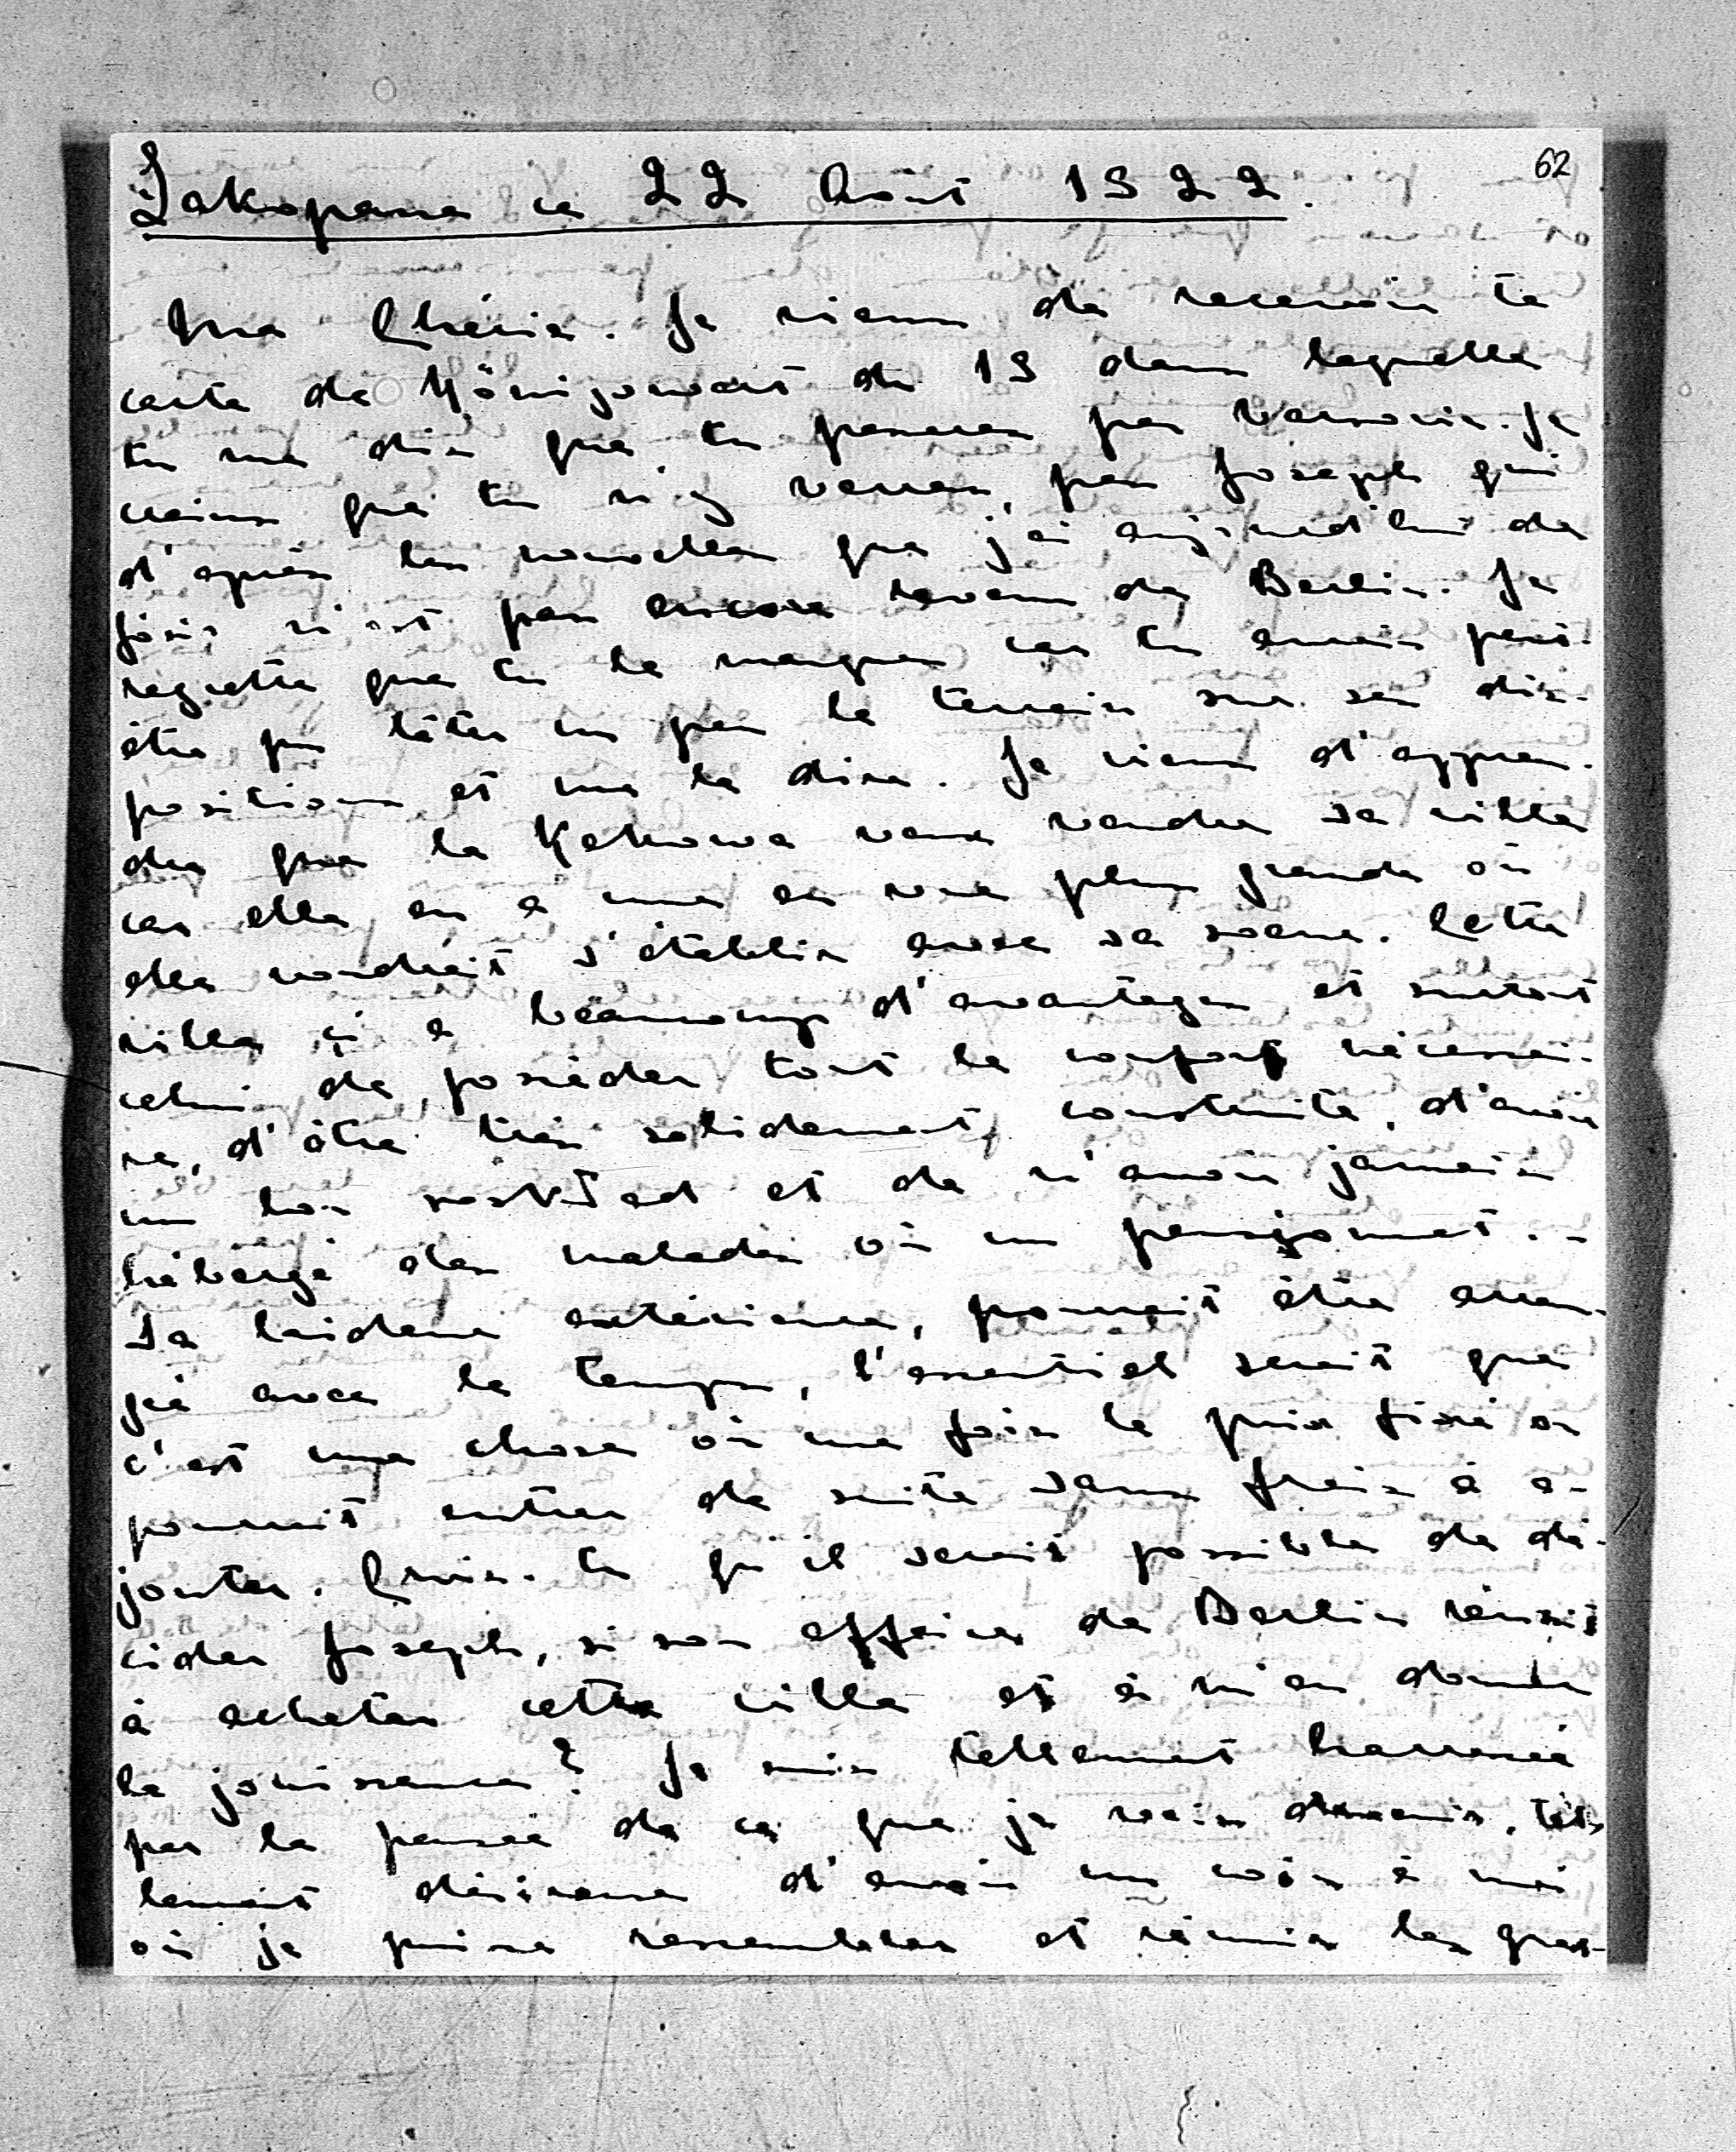 62
Zakopane ce 22 Août 1922.
Ma Chérie. Je viens de recevoir ta
carte de Königswart du 19 dans laquelle
tu me dis que tu passeras par Varsovie. Je
crains que tu n'y verras, pas Joseph qui
d'après les nouvelles que j'ai aujourd'hui de
Józio n'est pas encore revenu de Berlin. Je
regrette que tu le manques car tu aurais peut-
être pu tâter un peu le terrain sur ses dis-
positions et me le dire. Je viens d'appren-
dre que la veux vendre sa villa
car elle en a une en vue plus grande où
elle voudrait s'établir avec sa soeur. Cette
villa ci a beaucoup d'avantages et surtout
celui de posséder tout le confort nécessai-
re, d'être très solidement construite, d'avoir
un bon rozkład et de n'avoir jamais
hébergé des malades où un pensjonnat..
Sa laideur extérieure, pourrait être arran-
gée avec le temps, l'essentiel serait que
c'est une chose où une fois le prix fixé on
pourrait entrer de suite sans frais à a-
jouter. Crois-tu qu'il serait possible de dé-
cider Joseph, si son affaire de Berlin réussit
à acheter cette villa et à m'en donner
la jouissance? Je suis tellement harassée
par la pensée de ce que je vais devenir, tel-
lement désireuse d'avoir un coin à moi
où je puisse rassembler et réunir les quel-